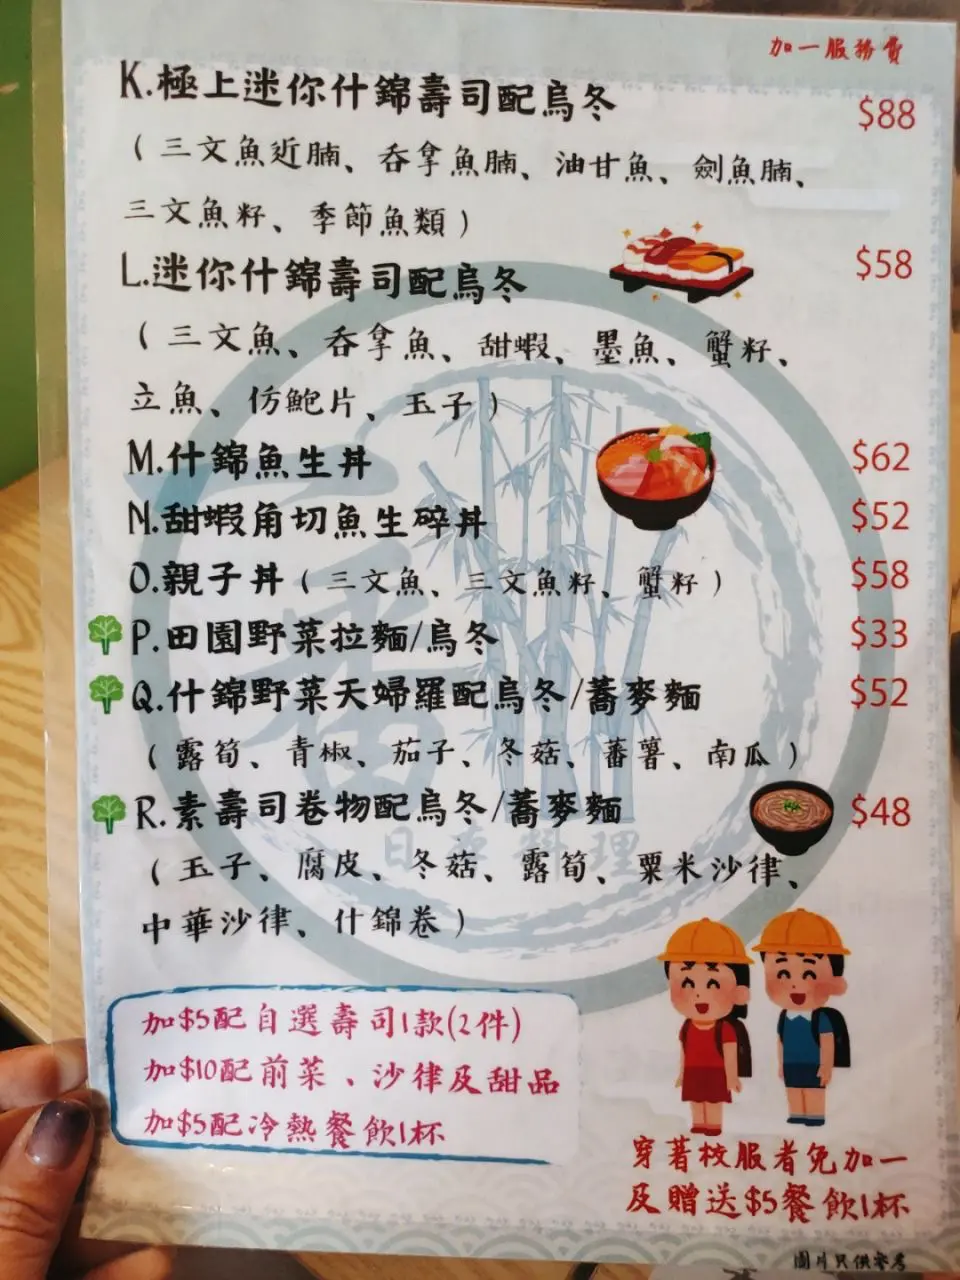 加一服務費
K.極上迷你什錦壽司配烏冬 $88
(三文魚近腩、吞拿魚腩、油甘魚、劍魚腩、
三文魚籽、季節魚類)
L.迷你什錦壽司配烏冬 $58
(三文魚、吞拿魚、甜蝦、墨魚、蟹籽、
立魚、仿鮑片、玉子)
M.什錦魚生丼 $62
N.甜蝦角切魚生碎丼 $52
O.親子丼(三文魚、三文魚籽、蟹籽) $58
P.田園野菜拉麵/烏冬 $33
Q.什錦野菜天婦羅配烏冬/蕎麥麵 $52
(露筍、青椒、茄子、冬菇、蕃薯、南瓜)
R.素壽司卷物配烏冬/蕎麥麵 $48
(玉子、腐皮、冬菇、露筍、粟米沙律、
中華沙律、什錦卷)
加$5配自選壽司1款(2件)
加$10配前菜、沙律及甜品
加$5配冷熱餐飲1杯
穿著校服者免加一
及贈送$5餐飲1杯
圖片只供參考